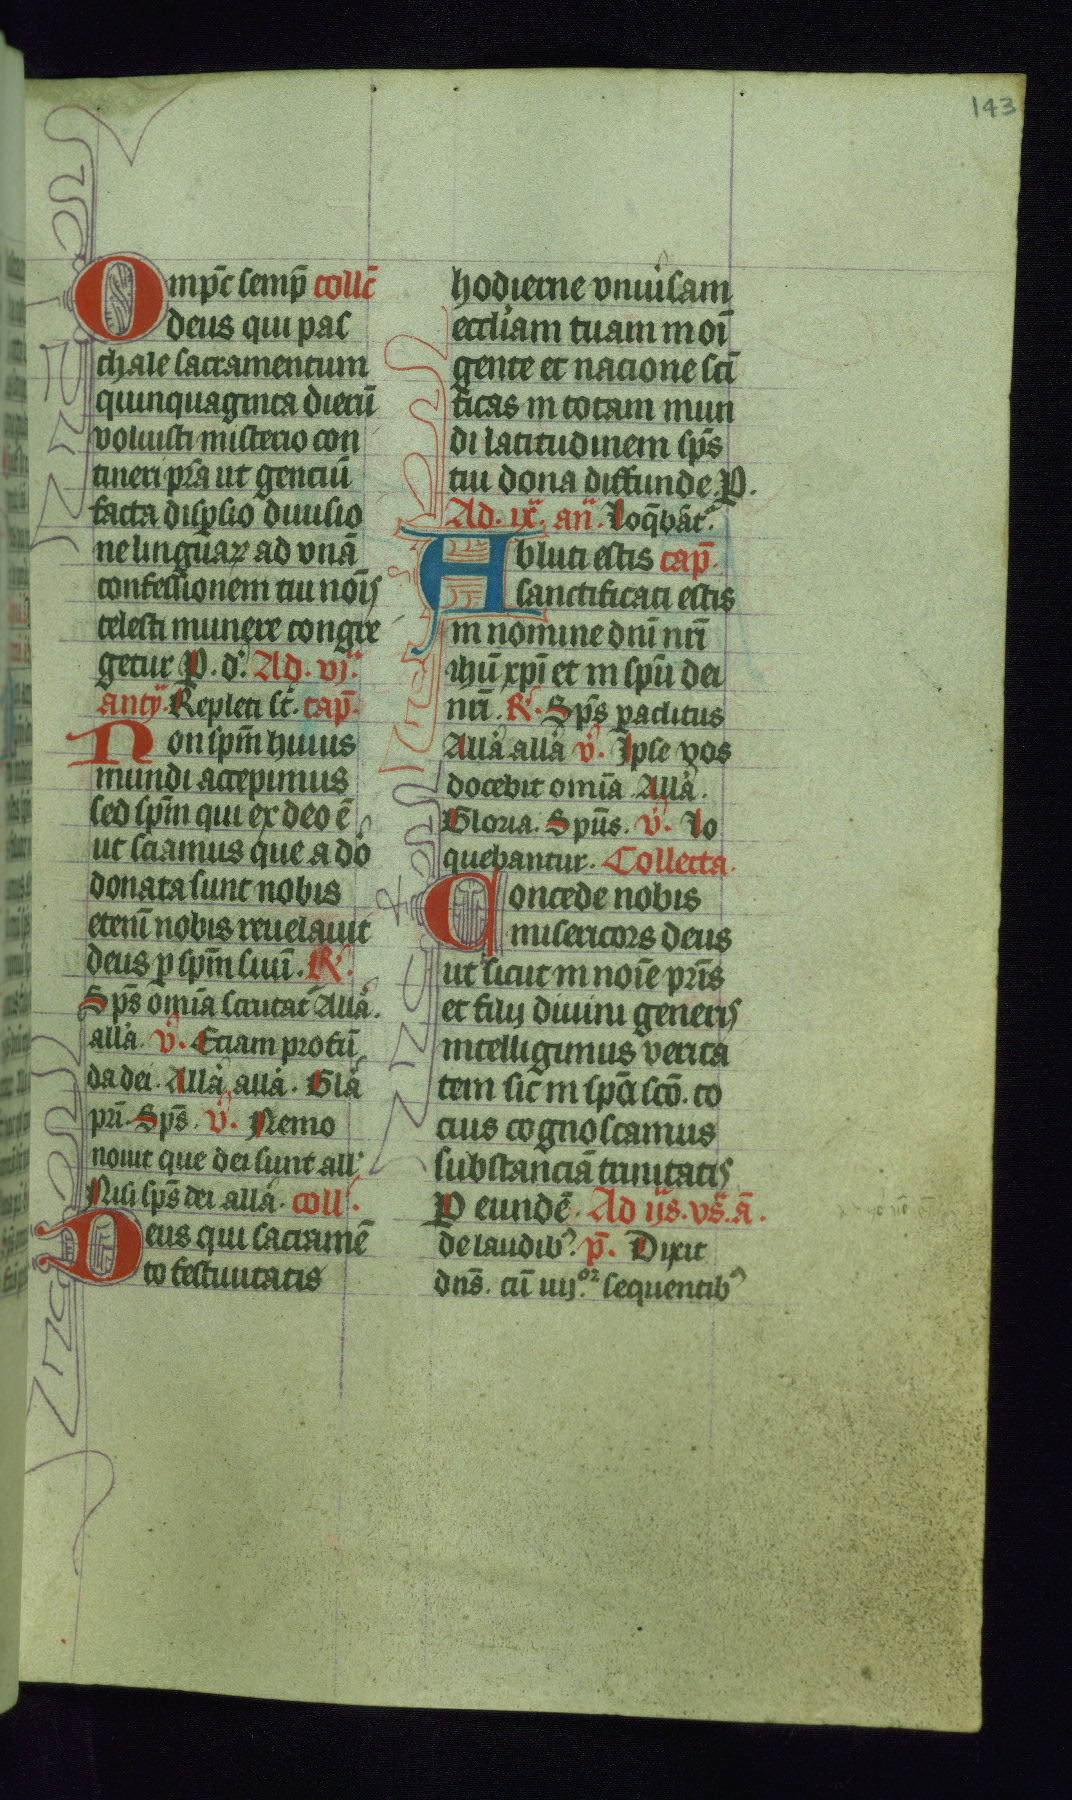 143
Omp̄c semp̄ collc̄
deus qui pas
chale sacramentum
quinquaginta dierū
voluisti misterio con
tineri p̄ra ut gentiū
facta disp̱sio diuisio
ne linguaꝝ ad vnā
confessionem tui noīs
celesti munere congre
getur P. d. Ad. vj.
anty. Repleti st̄. cap̄.
Non sp̄m huius
mundi accepimus
sed sp̄m qui ex deo ē
ut sciamus que a do
donata sunt nobis
etenī nobis reuelauit
deus p sp̄m suū. R.
Sp̄s om̄ia scrutat̄ Alla.
alla. v. Etiam profū
da dei. Alla alla. Gla
pri. Sp̄s. v. Nemo
nouit que dei sunt all
Nisi sp̄s dei alla. coll.
Deus qui sacramē
to festiuitatis
hodierne vniuˀsam
eccliam tuam in oī
gente et nacione scī
ficas in totam mun
di latitudinem sp̄s
tui dona diffunde. P.
Ad. ix. an̄. Loq̄bāt.
Abluti estis cap̄.
sanctificati estis
in nomine dn̄i nr̄i
ihū xp̄i et in sp̄u dei
nr̄i. R. Sp̄s paclitus
Alla alla v. Ipse vos
docebit om̄ia Alla.
Gloria. Spūs. v. Lo
quebantur. Collecta.
Concede nobis
misericors deus
ut sicut in noīe pr̄is
et filij diuini generis
intelligimus verita
tem sic̄ in sp̄u sc̄o. to
cius cognoscamus
substanciā trinitatis
P eundē. Ad ijs. vs̄. ā.
de laudibꝰ. p̄. Dixit
dn̄s. cū iiij.or sequentibꝰ